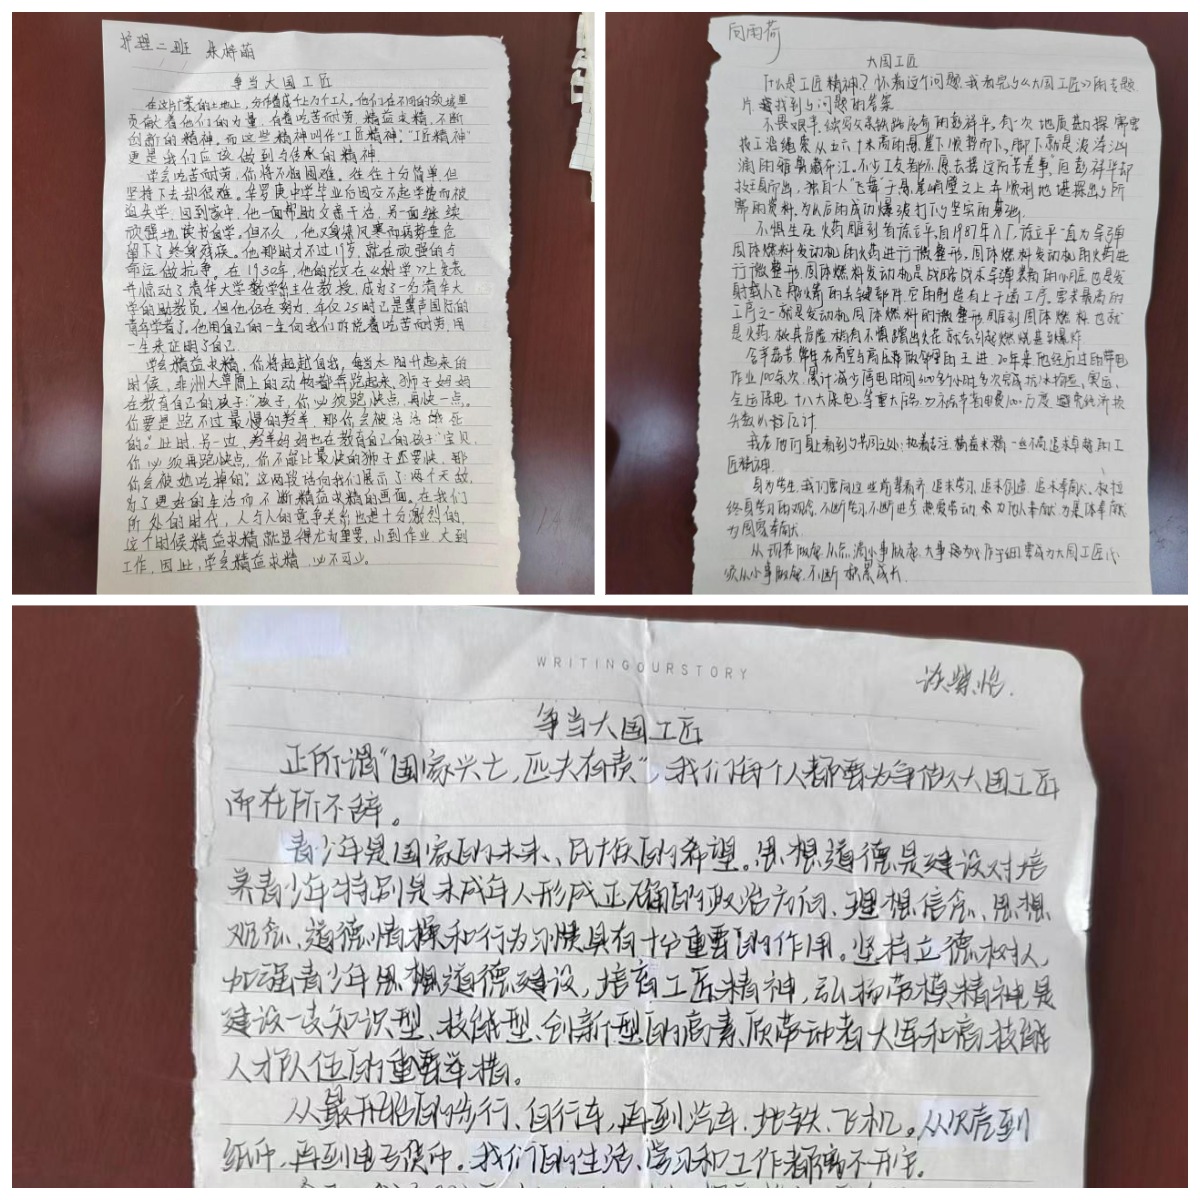 护理二班
争当大国工匠
在这片广袤的土地上，分布着成千上万个工人，他们在不同的领域里
贡献着他们的力量，有着吃苦而劳，精益求精，不断
创新的精神。而这些精神叫作“工匠精神”。“工匠精神”
更是我们应该做到与传承的精神。
学会吃苦而劳，你将不怕困难。往往十分简单，但
坚持下去却很难。华罗庚中学毕业后因交不起学费而被
迫失学。回到家中，他一面帮助父亲干活，另一面继续
顽强地读书自学。但不久，他又身染风寒而病势垂危
留下了终身残疾。他那时才不过19岁，就在顽强的与
命运做抗争。在1930年，他的论文在《科学》上发表
并惊动了清华大学数学系主任教授，成为了一名清华大
学的助教员。但他仍在努力，年仅25时已是蜚声国际的
青年学者了。他用自己的一生向我们诉说着吃苦而劳，用
一生来证明了自己。
学会精益求精，你将超越自我，每当太阳升起来的
时候，非洲大草原上的动物都奔跑起来。狮子妈妈
在教育自己的孩子：“孩子，你必须跑快点，再快一点。
你要是跑不过最慢的羚羊，那你会被活活饿死
的。”此时，另一边，羚羊妈妈也在教育自己的孩子：“宝贝，
你必须再跑快点，你不能比最快的狮子还要快，那
你会被她吃掉的。”这两段话向我们展示了两个天敌
为了更好的生活而不断精益求精的画面。在我们
所处的时代，人与人的竞争关系也是十分激烈的，
这个时候精益求精就显得尤为重要，小到作业，大到
工作，因此，学会精益求精，必不可少。
向雨荷
大国工匠
什么是工匠精神？怀着这个问题，我看完了《大国工匠》的专题
片，找到了问题的答案。
不畏艰辛，续写父亲铁路传奇的彭祥华，有一次地质勘探需要
技工沿绳索从五六十米高的悬崖下顺势而下，脚下就是波涛汹
涌的雅鲁藏布江，不少工友都不愿去接这份苦差事，但彭祥华却
挺身而出，独自一人“飞舞”于悬崖峭壁之上，在顺利地勘探出了所
需的资料，为以后的成功爆破打下坚实的基础。
不惧生死，火药雕刻者徐立平，自1987年入厂，徐立平一直为导弹
固体燃料发动机的火药进行微整形。固体燃料发动机的火药进
行微整形，固体燃料发动机是战略战术导弹装备的心脏，也是发
射载人飞船火箭的关键部件，它的制造有上千道工序，要求最高的
工序之一就是发动机固体燃料的微整形，雕刻固体燃料，也就
是火药，极其危险，稍有不慎蹭出火花，就会引起燃烧甚至爆炸。
含辛茹苦，常年在高空与高压导做邻的王进，20年来他经历过的带电
作业100余次，累计减少停电时间600多个小时，多次完成抗冰抢险、奥运、
全运保电、十八大保电等重大任务，为 100万度，避免经济损
失数以 亿计。
我在他们身上看到了共同之处：执着专注、精益求精、一丝不苟、追求卓越的工
匠精神。
身为学生，我们要向这些前辈看齐，追求学习，追求创造，追求奉献，树立
终身学习的观念，不断学习，不断进步，热爱劳动，为他人奉献，为集体奉献，
为国家奉献。
从现在做起，从点滴小事做起，大事 作于细，要成为大国工匠，必
须从小事做起，不断积累成长。
WRITINGOURSTORY
争当大国工匠
正所谓“国家兴亡，匹夫有责”，我们每个人都要为争做大大国工匠
而在所不辞。
青少年是国家的未来、民族的希望。思想道德是建设对培
养青少年特别是未成年人形成正确的政治方向、理想信念、思想
观念、道德情操和行为习惯具有十分重要的作用。坚持立德树人，
加强青少年思想道德建设，培育工匠精神，弘扬劳模精神是
建设一支知识型、技能型、创新型的高素质劳动者大军和高技能
人才队伍的重要举措。
从最开始的步行、自行车，再到汽车、地铁、飞机。从贝壳到
纸币，再到电子货币。我们的生活、学习和工作都离不开它。